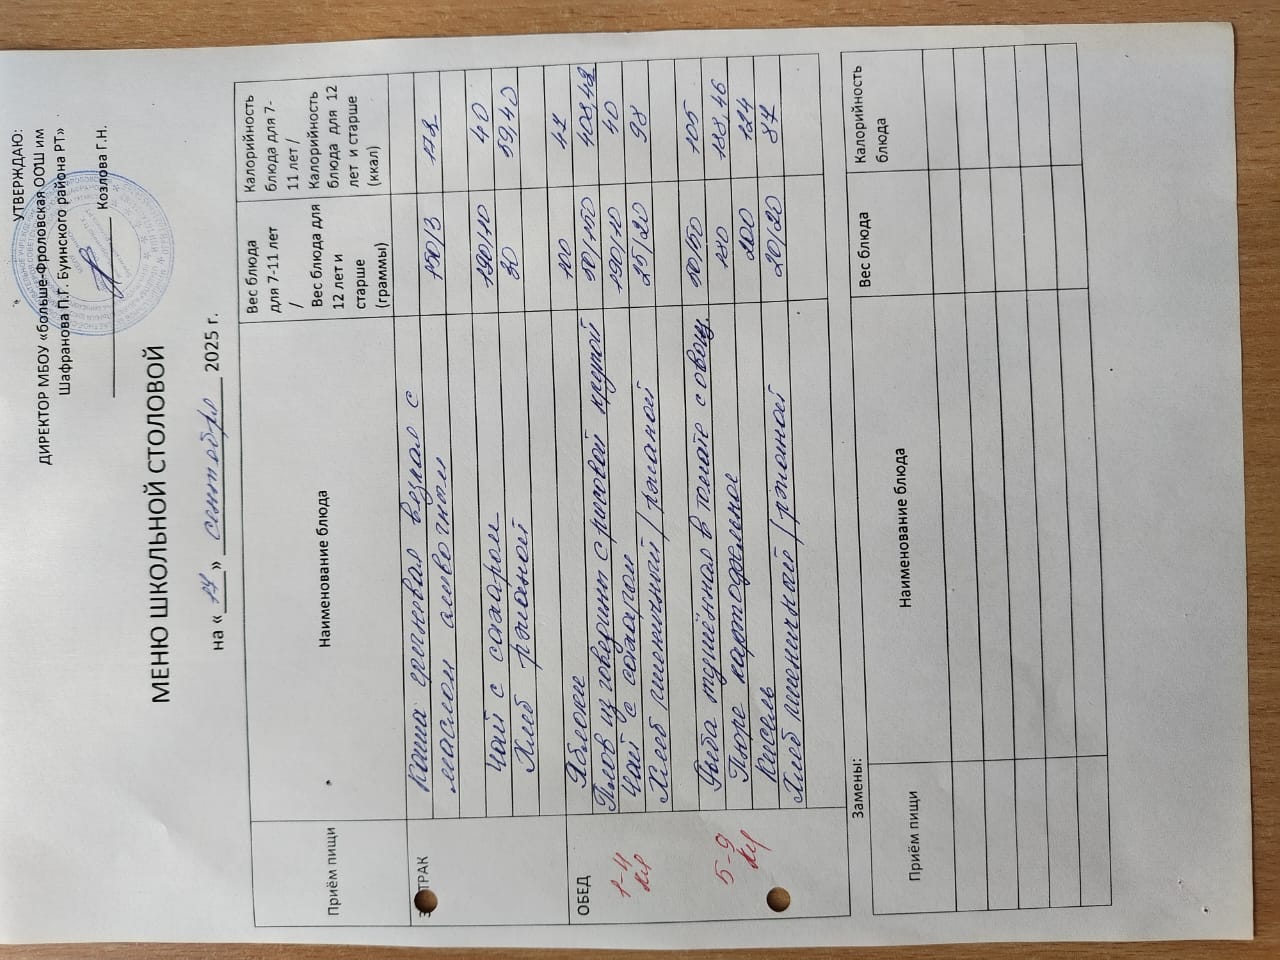 УТВЕРЖДАЮ:
ДИРЕКТОР МБОУ «больше-Фроловская ООШ им
Шафранова П.Г. Буинского района РТ»
Козлова Г.Н.
МЕНЮ ШКОЛЬНОЙ СТОЛОВОЙ
на « » сентября 2025 г.
Приём пищи Наименование блюда Вес блюда для 7-11 лет / Вес блюда для 12 лет и старше (граммы) Калорийность блюда для 7-11 лет / Калорийность блюда для 12 лет и старше (ккал)
ЗАВТРАК Каша гречневая вязкая с 150/3
маслом сливочным
Чай с сахаром 190/10 40
Хлеб ржаной 30 59,40
ОБЕД Яблоки 100
Плов из говядины с рисовой крупой 50/150
1-4 кл Чай с сахаром 190/10 40
Хлеб пшеничный / ржаной 25/20 98
5-9 кл Рыба тушённая в томате с овощ. 50/50 105
Пюре картофельное 138,46
Кисель 200 124
Хлеб пшеничный / ржаной 20/20 87
Замены:
Приём пищи Наименование блюда Вес блюда Калорийность блюда